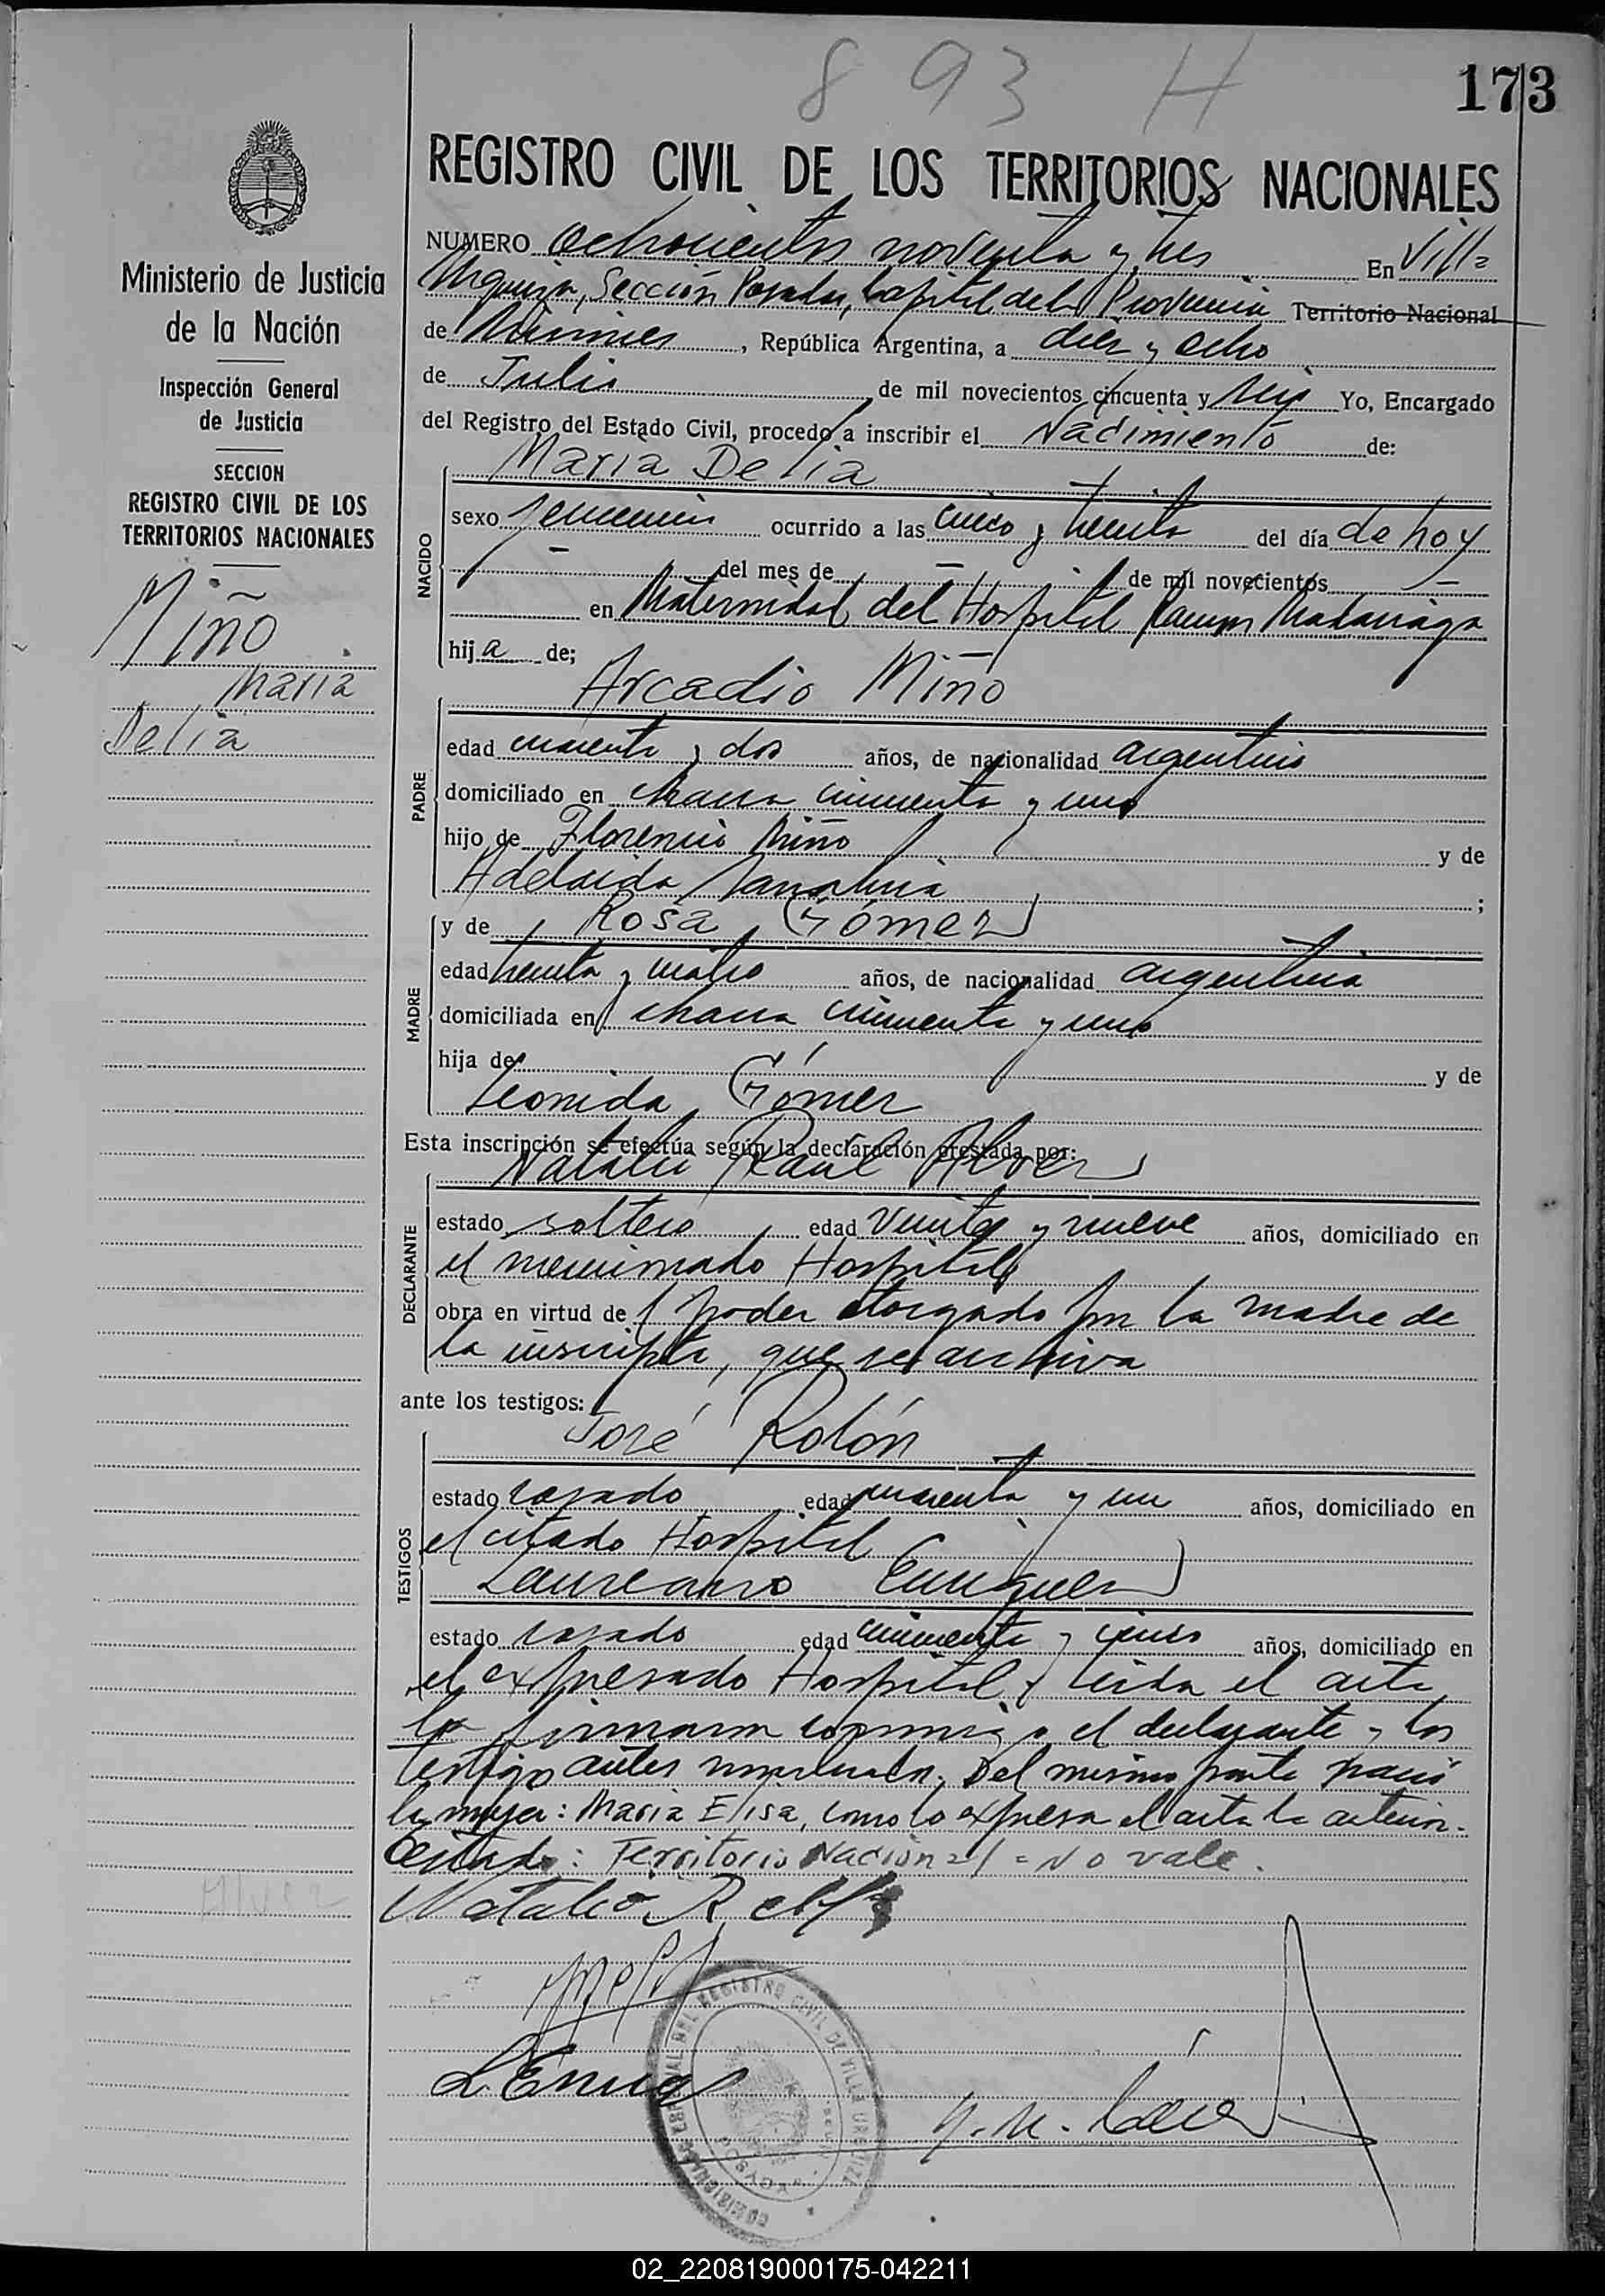 8 93 H
173
REGISTRO CIVIL DE LOS TERRITORIOS NACIONALES
Ministerio de Justicia
de la Nación
Inspección General
de Justicia
SECCION
REGISTRO CIVIL DE LOS
TERRITORIOS NACIONALES
Miño
Maria
Delia
NUMERO Ochocientos noventa y tres En Villa
Urquiza, Sección Posadas, Capital de la Provincia Territorio Nacional
de Misiones, República Argentina, a diez y ocho
de Julio de mil novecientos cincuenta y seis Yo, Encargado
del Registro del Estado Civil, procedo a inscribir el Nacimiento de:
NACIDO
Maria Delia
sexo femenino ocurrido a las cinco y treinta del día de hoy
— del mes de — de mil novecientos —
en Maternidad del Hospital Ramon Madariaga
hija de;
PADRE
Arcadio Miño
edad cuarenta y dos años, de nacionalidad argentino
domiciliado en chacra cincuenta y uno
hijo de Florencio Miño y de
Adelaida ;
MADRE
y de Rosa Gómez
edad treinta y cuatro años, de nacionalidad argentina
domiciliada en chacra cincuenta y uno
hija de y de
Leonida Gómez
Esta inscripción se efectúa según la declaración prestada por:
DECLARANTE
Natalio Raul Alvez
estado soltero edad veinte y nueve años, domiciliado en
el mencionado Hospital
obra en virtud de poder otorgado por la madre de
la inscripta, que se archiva
ante los testigos:
TESTIGOS
José Rolón
estado casado edad cuarenta y un años, domiciliado en
el citado Hospital
Laureano Enriquez
estado casado edad cincuenta y cinco años, domiciliado en
el expresado Hospital. Leida el acta
la firmaron conmigo el declarante y los
testigos antes nombrados. Del mismo parto nació
la mujer: Maria Elisa, como lo expresa el acta la anterior.
Testado: Territorio Nacional = No vale.
Natalio R.
L. Enriq
REGISTRO CIVIL DE VILLA URQUIZA
POSADAS
02_220819000175-042211